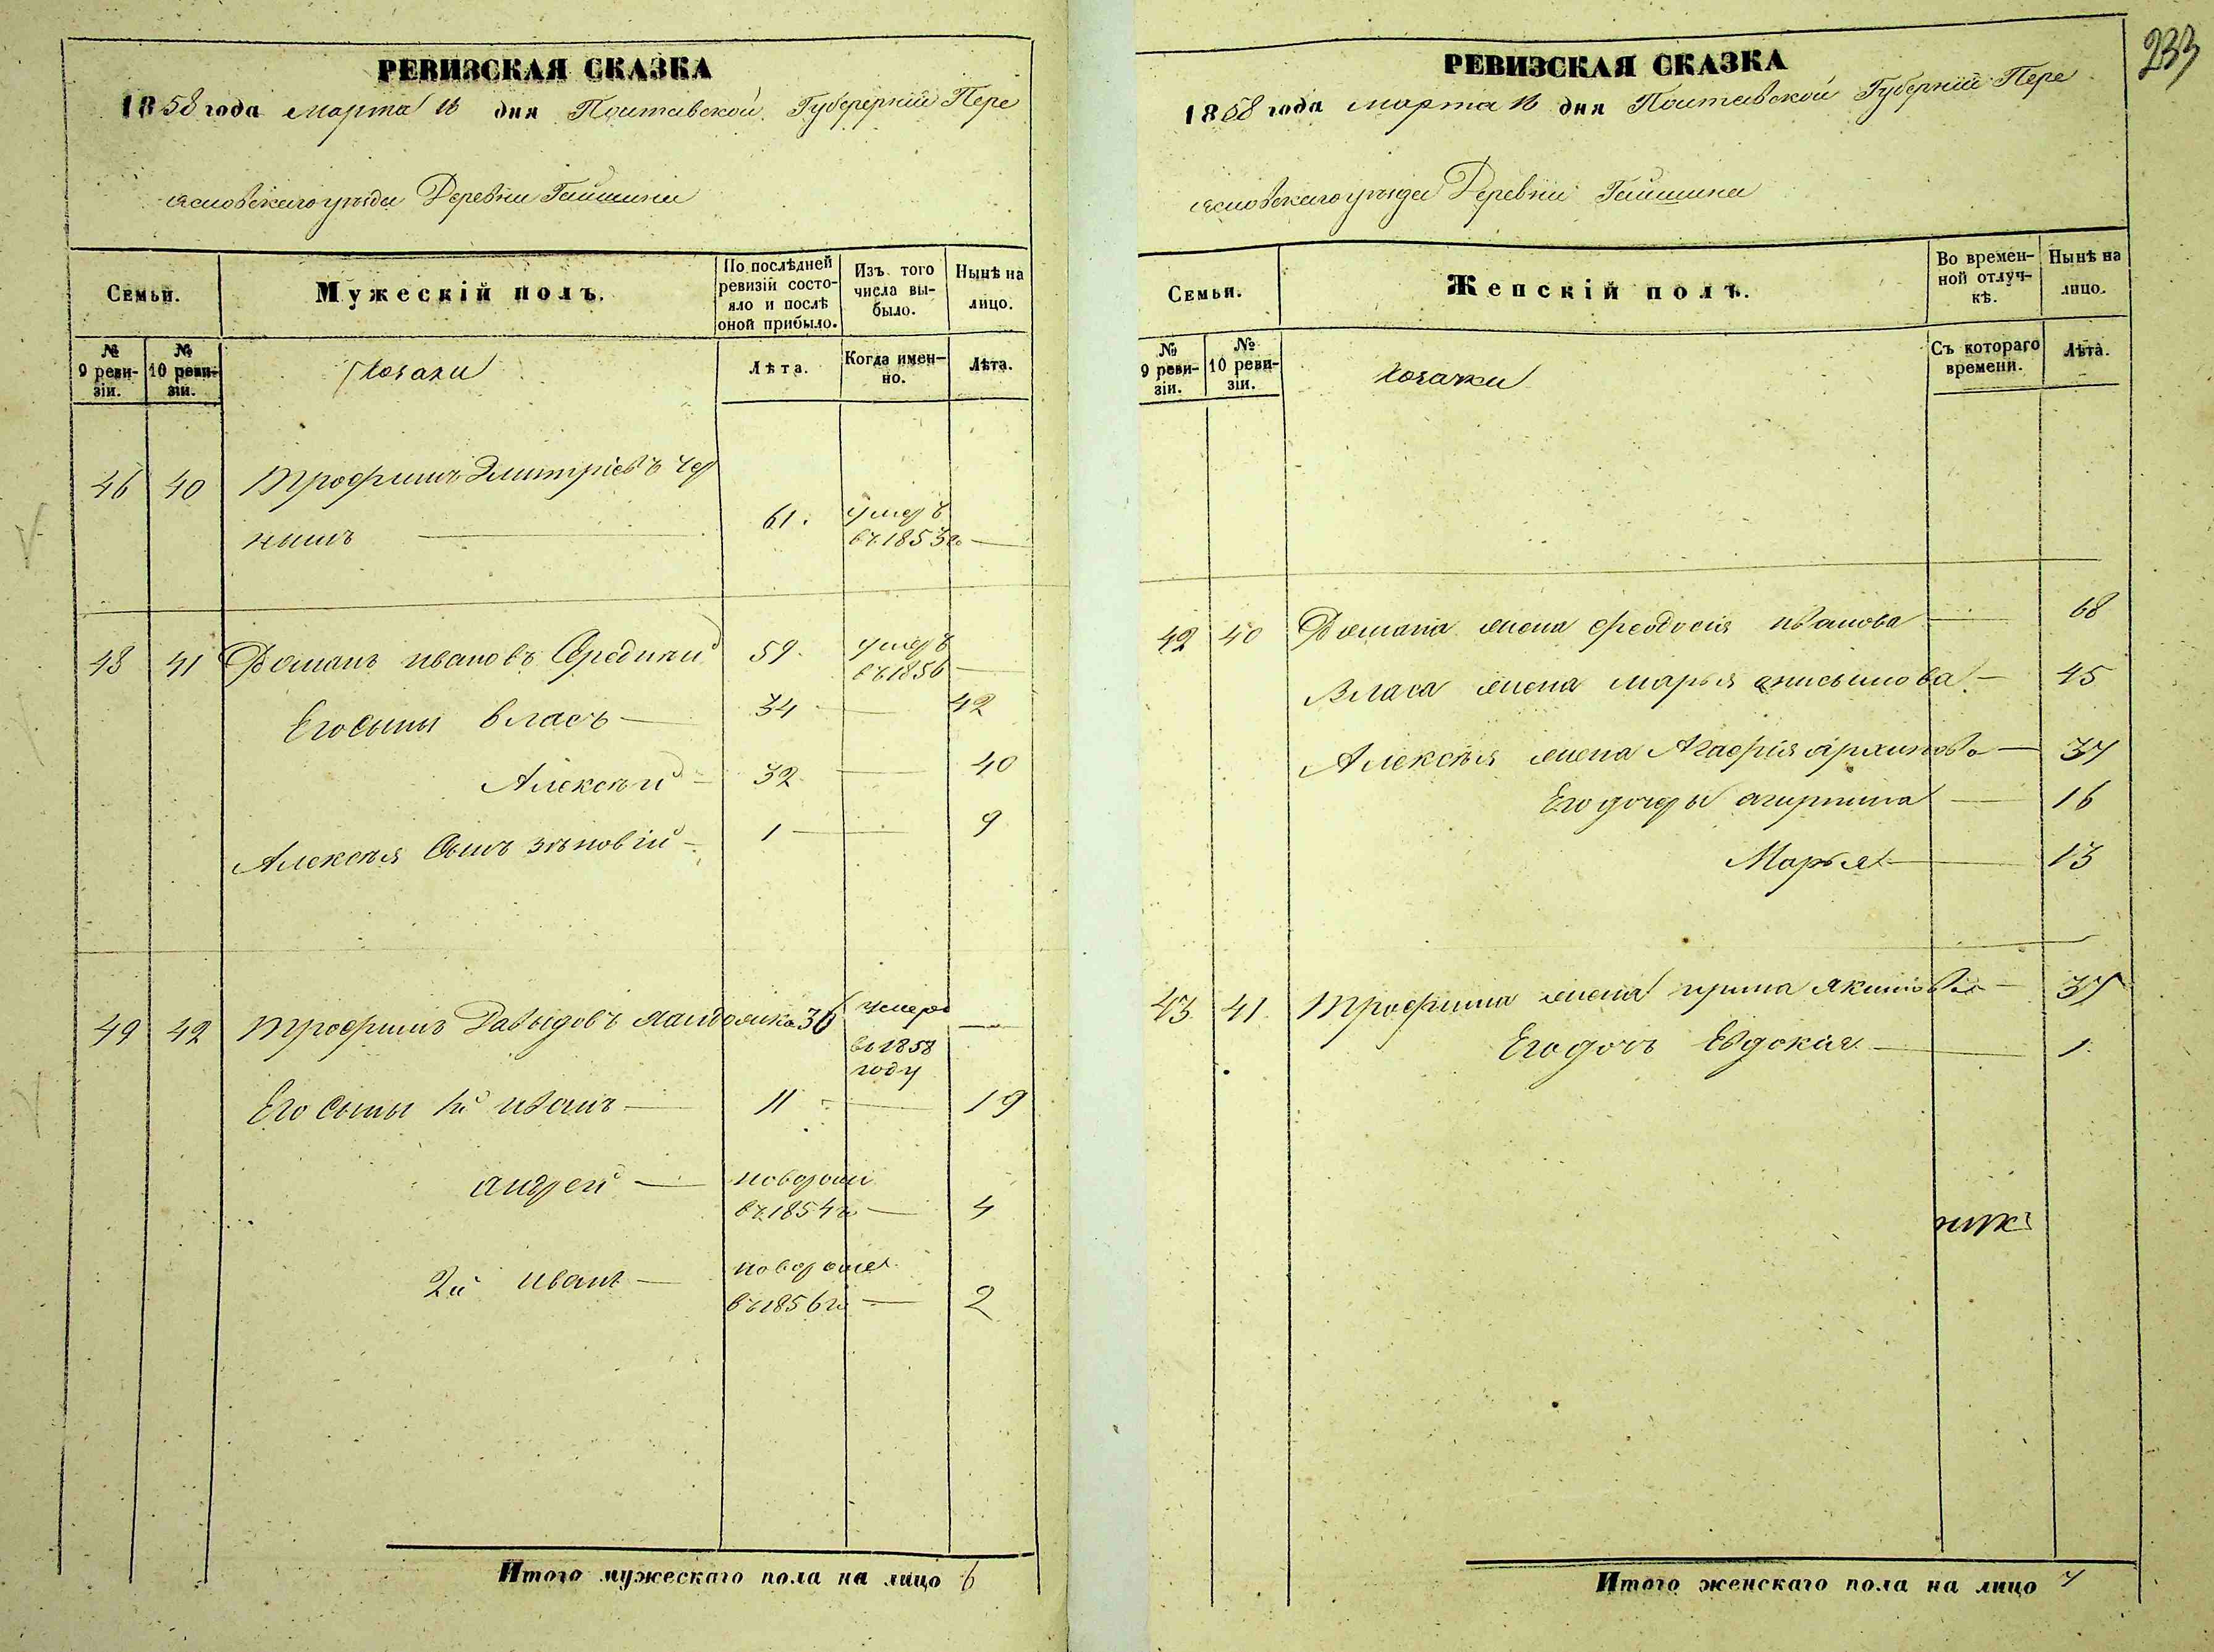 РЕВИЗСКАЯ СКАЗКА
1858 года марта 16 дня Полтавской Губерерніи Пере
яславскаго уѣзда Деревни Гайшина
Семьи.
Мужескій полъ.
По послѣдней ревизіи состояло и послѣ оной прибыло.
Изъ того числа выбыло.
Нынѣ на лицо.
№ 9 ревизіи.
№ 10 ревизіи.
Козаки
Лѣта.
Когда именно.
Лѣта.
46 40 Трофимъ Дмитріевъ Чер
нышъ 61. умеръ
въ 1853 го —
48 41 Романъ Ивановъ Середній 59. умеръ
въ 1856 —
Его сыны Власъ — 34 — 42
Алексѣй — 32 — 40
Алексѣя Сынъ Зѣновій — 1 — 9
49 42 Трофимъ Давыдовъ 36 умеръ —
въ 1858
году
Его Сыны 1й Иванъ — 11 — 19
Андрей — новорож
въ 1854 го — 4
2й Иванъ — новорож
въ 1856 го — 2
Итого мужескаго пола на лицо 6
233
РЕВИЗСКАЯ СКАЗКА
1858 года марта 16 дня Полтавской Губерніи Пере
яславскаго уѣзда Деревни Гайшина
Семьи.
Женскій полъ.
Во временной отлучкѣ.
Нынѣ на лицо.
№ 9 ревизіи.
№ 10 ревизіи.
Козачки
Съ котораго времени.
Лѣта.
42 40 Романа жена Феодосія Иванова — 68
Власа жена Марья Анисимова — 45
Алексѣя жена Агафія Архипова — 37
Его дочеры — 16
Марья — 13
43. 41. Трофима жена Ирина Якимова — 37
Его дочь Евдокія — 1.
Итого женскаго пола на лицо 7